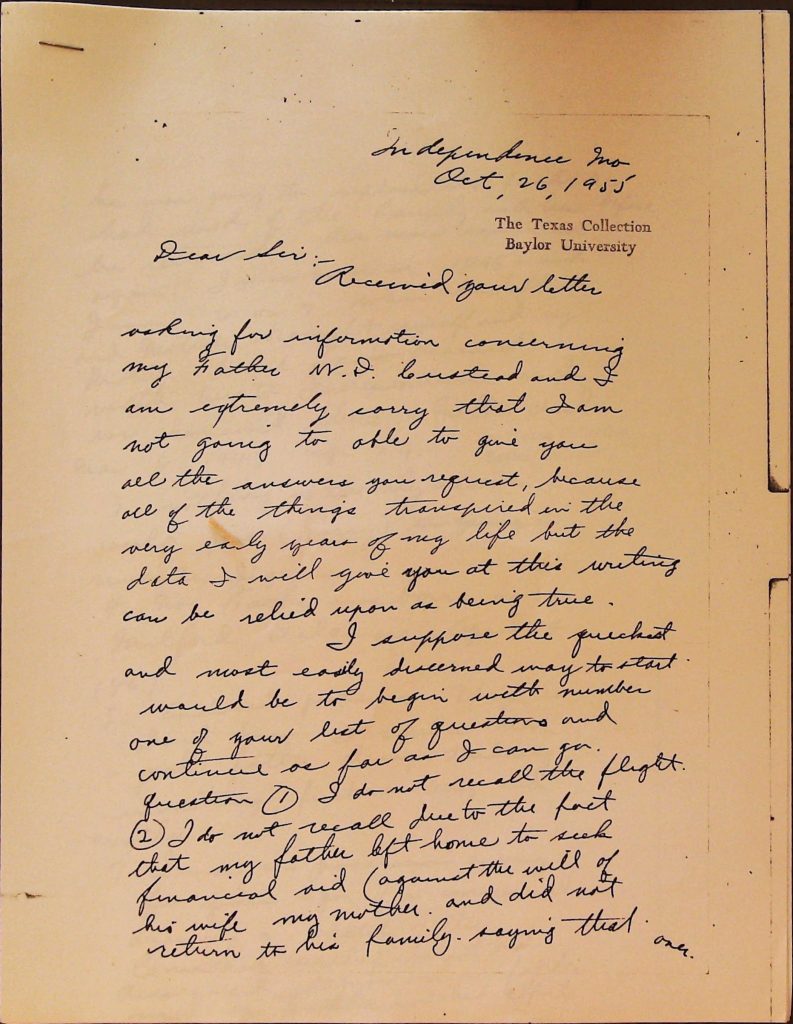 Independence Mo
Oct, 26, 1955
The Texas Collection
Baylor University
Dear Sir:-
Received your letter
asking for information concerning
my Father W. D. Custead and I
am extremely sorry that I am
not going to able to give you
all the answers you request, because
all of the things transpired in the
very early years of my life but the
data I will give you at this writing
can be relied upon as being true.
I suppose the quickest
and most easily discerned way to start
would be to begin with number
one of your list of questions and
continue as far as I can go.
question ① I do not recall the flight.
② I do not recall due to the fact
that my father left home to seek
financial aid (against the will of
his wife my mother. and did not
return to his family. saying that
over.